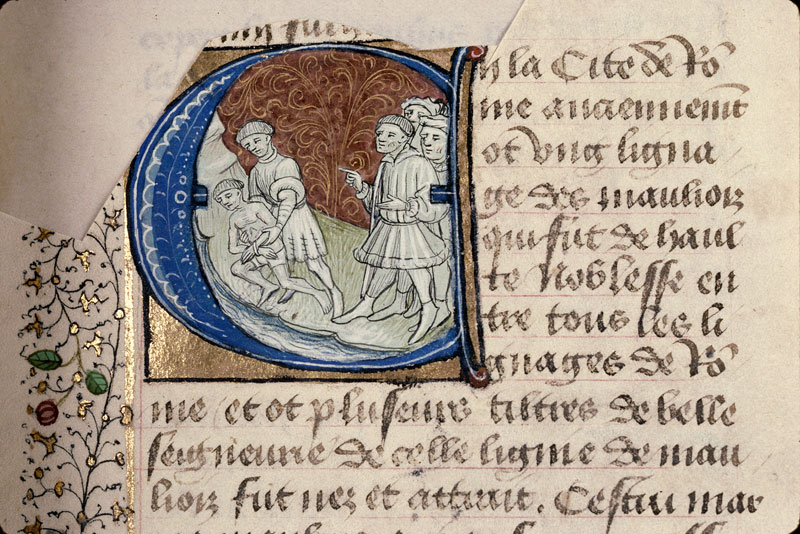 En la Cite de Ro
me anciennemt
ot vng ligna
ge des mauliox
qui fut de haul
te Noblesse en
tre tous les li
gnages de Ro
me et ot pluseurs tiltres de belle
seigneurie de celle ligme de mau
liox fut nez et attrait. Cestui mar